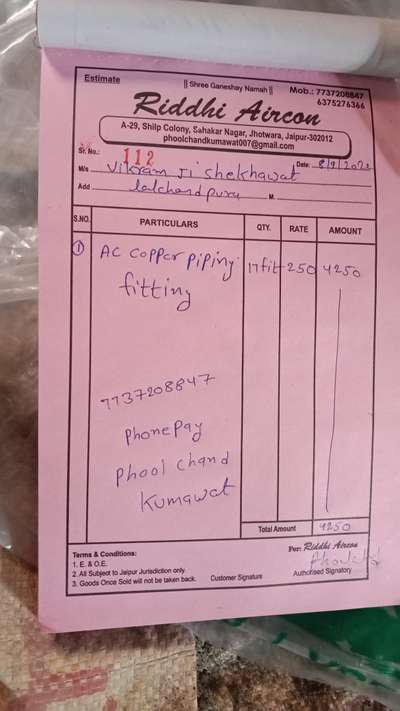 Estimate
|| Shree Ganeshay Namah ||
Mob.: 7737208847
6375276366
Riddhi Aircon
A-29, Shilp Colony, Sahakar Nagar, Jhotwara, Jaipur-302012
phoolchandkumawat007@gmail.com
Sr. No.: 112
Date:
M/s Vikram Ji Shekhawat
Add lalchandpura M.
S.NO. PARTICULARS QTY. RATE AMOUNT
1 AC Copper piping 17fit 250 4250
fitting
7737208847
Phone Pay
Phool Chand
Kumawat
Total Amount 4250
Terms & Conditions:
For: Riddhi Aircon
1. E. & O.E.
2. All Subject to Jaipur Jurisdiction only.
3. Goods Once Sold will not be taken back. Customer Signature Authorised Signatory